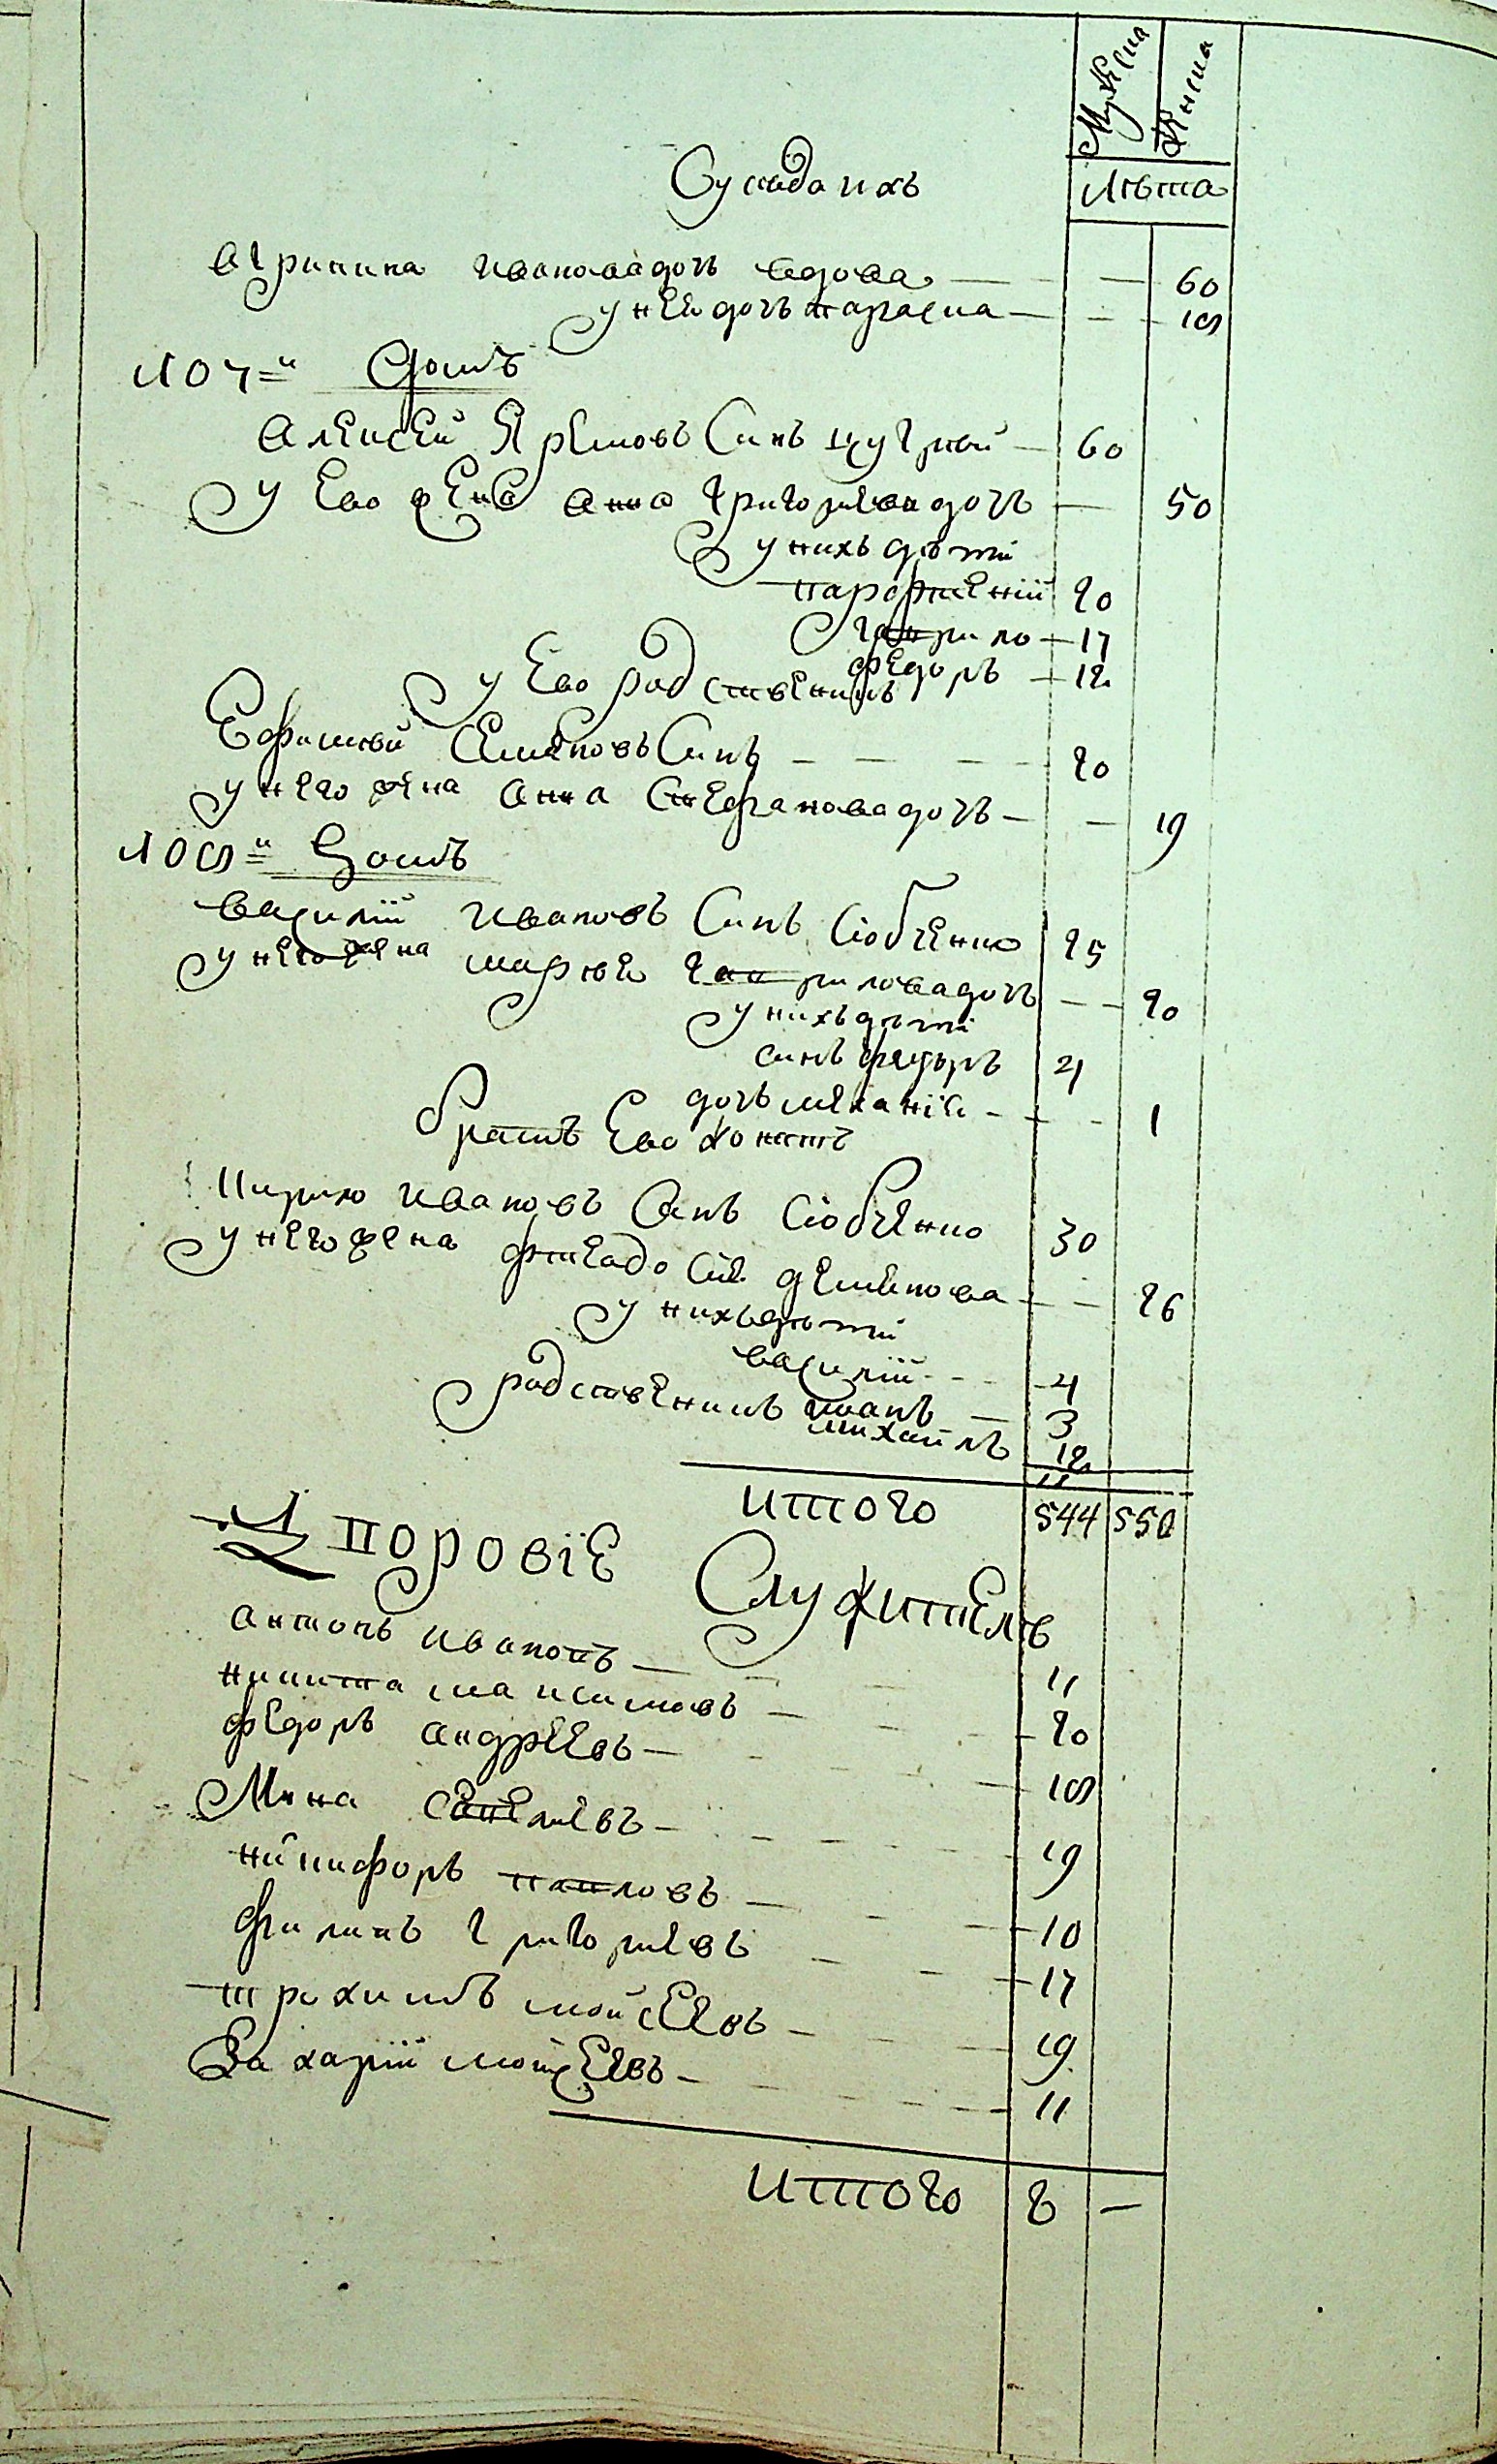 Мужска Женска
Лѣта
Сусѣда ихъ
агрипина Иванова дочь вдова — — 60
у нея дочь тараска — — 18
107й Домъ
Алексей Яремовъ Синъ цугрій — 60
У Ево жена анна григориева дочь — 50
У нихъ дѣти
парфтеній 20
гаврило — 17
федоръ — 12
У Ево родственикъ
Ефимъ Семеновъ Синъ — — — 20
У него жена анна Стефанова дочь — — 19
108й Домъ
Василій Ивановъ Синъ Собченко 25
У него жена марфа гавриловадочь — — 20
У нихъ дѣти
синъ федоръ 4
дочь меланія — — 1
братъ Ево
Кирило Ивановъ Синъ Собченко 30
У него жена феодосія деменова — — 26
У нихъ дѣти
василій — 4
иванъ — 3
родственикъ михаилъ 12
итого 544 550
Дворовіе Служителѣ
антонъ ивановъ — 11
никита максимовъ — 20
федоръ андреевъ — 18
Мина савелиевъ — 19
никифоръ павловъ — 10
филипъ григориевъ — 17
трохимъ мойсеевъ — 19
Захарій мойсеевъ — 11
итого 8 —